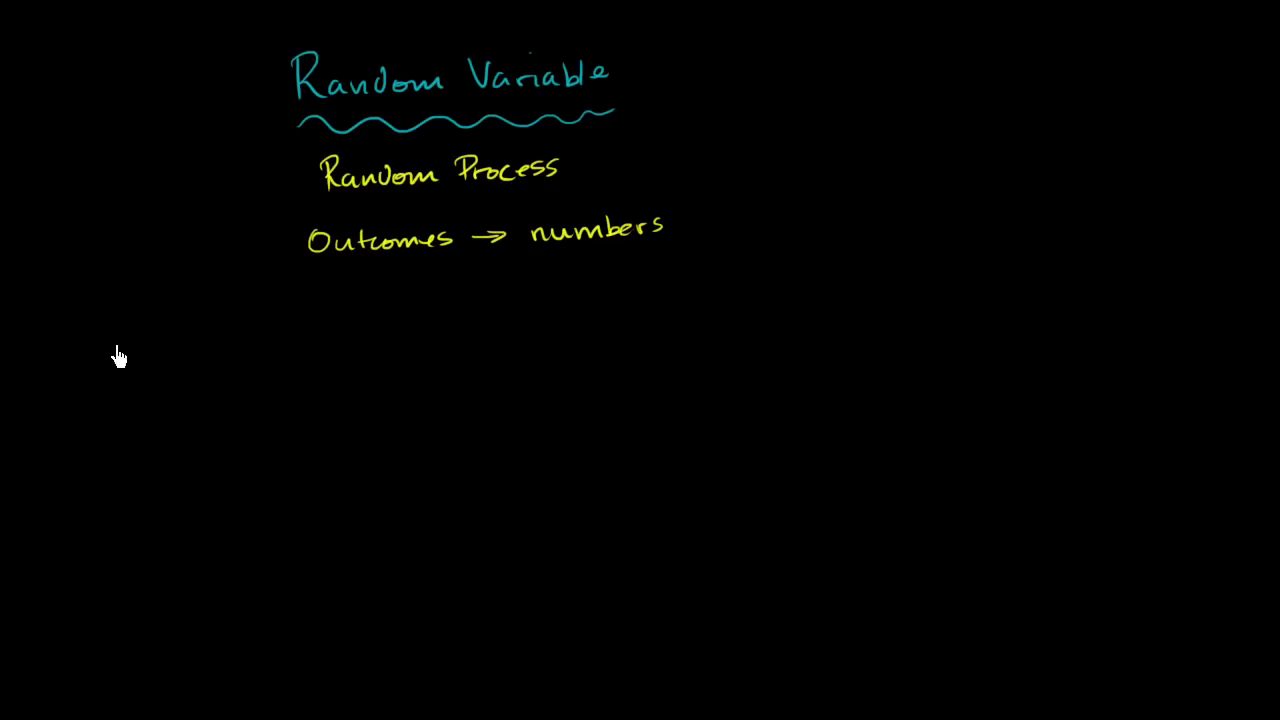 Random Variable
Random Process
Outcomes → numbers